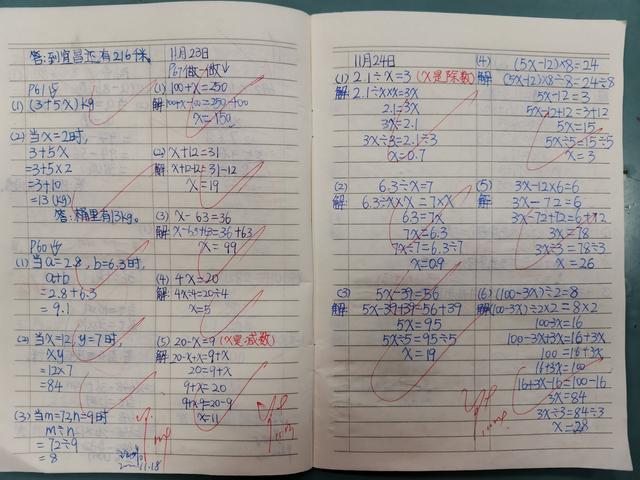 答:到宜昌还有216千米.
P61
(1) (3+5x)kg
(2) 当x=2时,
3+5x
=3+5×2
=3+10
=13(kg)
答:桶里有13kg。
P60
(1) 当a=2.8, b=6.3时,
a+b
=2.8+6.3
=9.1
(2) 当x=12, y=7时,
xy
=12×7
=84
(3) 当m=72,n=9时
m÷n
=72÷9
=8
11.18
11月23日
P67做一做
(1) 100+x=250
解: 100+x-100=250-100
x=150
(2) x+12=31
解: x+12-12=31-12
x=19
(3) x-63=36
解: x-63+63=36+63
x=99
(4) 4x=20
解: 4x÷4=20÷4
x=5
(5) 20-x=9 (x是减数)
解: 20-x+x=9+x
20=9+x
9+x=20
9+x-9=20-9
x=11
11月24日
(1) 2.1÷x=3 (x是除数)
解: 2.1÷x×x=3x
2.1=3x
3x=2.1
3x÷3=2.1÷3
x=0.7
(2) 6.3÷x=7
解: 6.3÷x×x=7×x
6.3=7x
7x=6.3
7x÷7=6.3÷7
x=0.9
(3) 5x-39=56
解: 5x-39+39=56+39
5x=95
5x÷5=95÷5
x=19
(4) (5x-12)×8=24
解: (5x-12)×8÷8=24÷8
5x-12=3
5x-12+12=3+12
5x=15
5x÷5=15÷5
x=3
(5) 3x-12×6=6
解: 3x-72=6
3x-72+72=6+72
3x=78
3x÷3=78÷3
x=26
(6) (100-3x)÷2=8
解: (100-3x)÷2×2=8×2
100-3x=16
100-3x+3x=16+3x
100=16+3x
16+3x=100
16+3x-16=100-16
3x=84
3x÷3=84÷3
x=28